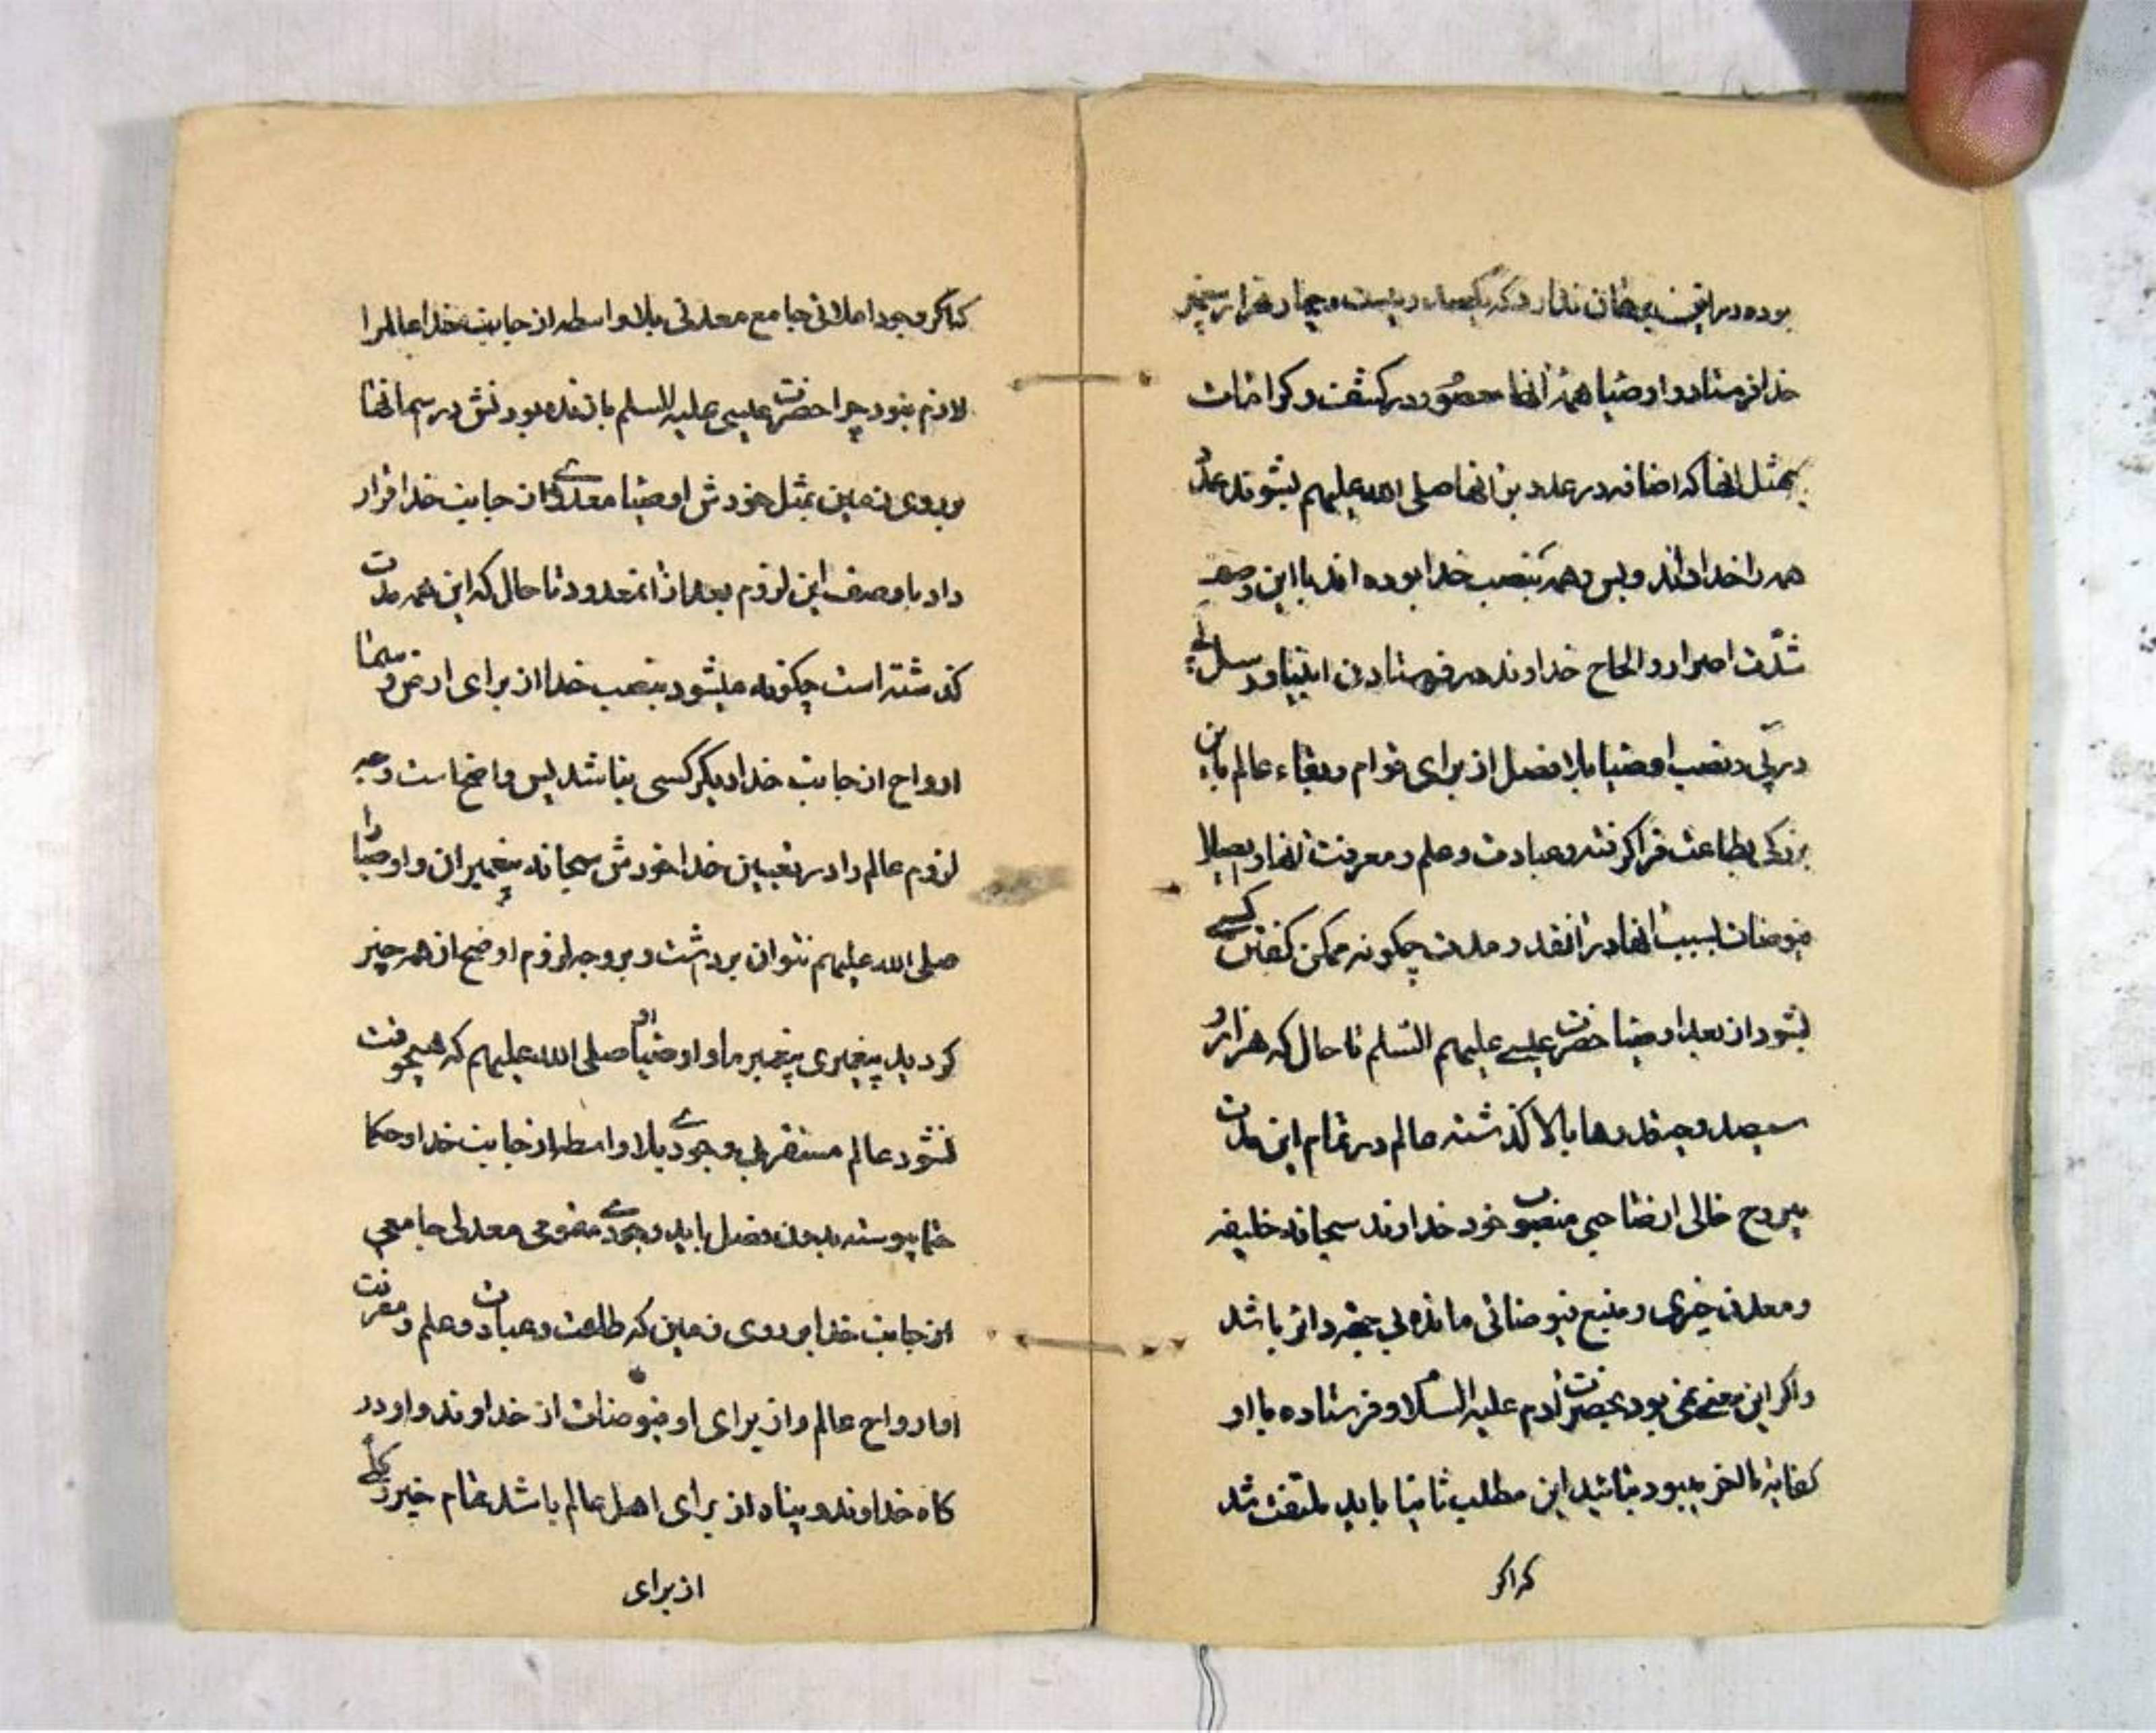 بوده در این نیست و چهار هزار پیغمبر
خدا فرستاد و اوصیا همهٔ آنها محصور در کشف و کرامات
بمثل آنها که اضافه در عدد بن آنها صلی الله علیهم بشوند عدد
همه را خدا داند و بس و همه بنصب خدا بوده اند با این وصف
شدّت اصرار و الحاح خداوند در فرستادن انبیا و رسل پی
در پی و نصب اوصیا بلا فصل از برای قوام و بقاء عالم باین
بزرکی بطاعت فرا کرفته و عبادت و علم و معرفت آنها و ایصال
فیوضات بسبب آنها در آنقدر مدت چکونه ممکن کفتن کسی
بشود از بعد اوصیا حضرت عیسی علیهم السلم تا حال که هزار و
سیصد و چند رها بالا کذشته عالم در تمام این مدت
بیروح خالی از صاحبی منصوب خود خداوند سبحانه خلیفه
و معدن خیری و منبع فیوضاتی مانده بی جهة دائر باشد
و اکر این معنی نمی بود بحضرت آدم علیه السلام و فرستاده با او
کفایة بالخر میبود بتائید این مطلب ثانیا باید ملتفت شد
که اکر
که اکر وجود املائی جامع معدنی بلا واسطه از جانب خدا عالم را
لازم نبود چرا حضرت عیسی علیه السلم با زنده بودنش در سمانها
بر روی زمین بمثل خودش اوصیا معدنی از جانب خدا قرار
داد با وصف این لزوم بعد از آنمعدود تا حال که این همه مدت
کذشته است چکونه میشود بنصب خدا از برای ارض و سما
ارواح از جانب خدا دیکر کسی نباشد پس واضح است وجه
لزوم عالم را در تعیین خدا خودش سبحانه پیغمبران و اوصیا را
صلی الله علیهم نتوان برداشت و بر وجه لزوم اوضح از هر چیز
کردید پیغمبری پیغمبر ما و اوصیا او صلی الله علیهم که هیچوقت
نشود عالم مستقر بی وجودی بلا واسطه از جانب خدا و حکما
ختما پیوسته بدون فصل باید وجودی مقومی معدنی جامعی
از جانب خدا بر روی زمین که طاعت و عبادت و علم و معرفت
او ارواح عالم و از برای او فیوضات از خداوند و او در
کاه خداوند و پناه از برای اهل عالم باشد تمام خیر کلی
از برای